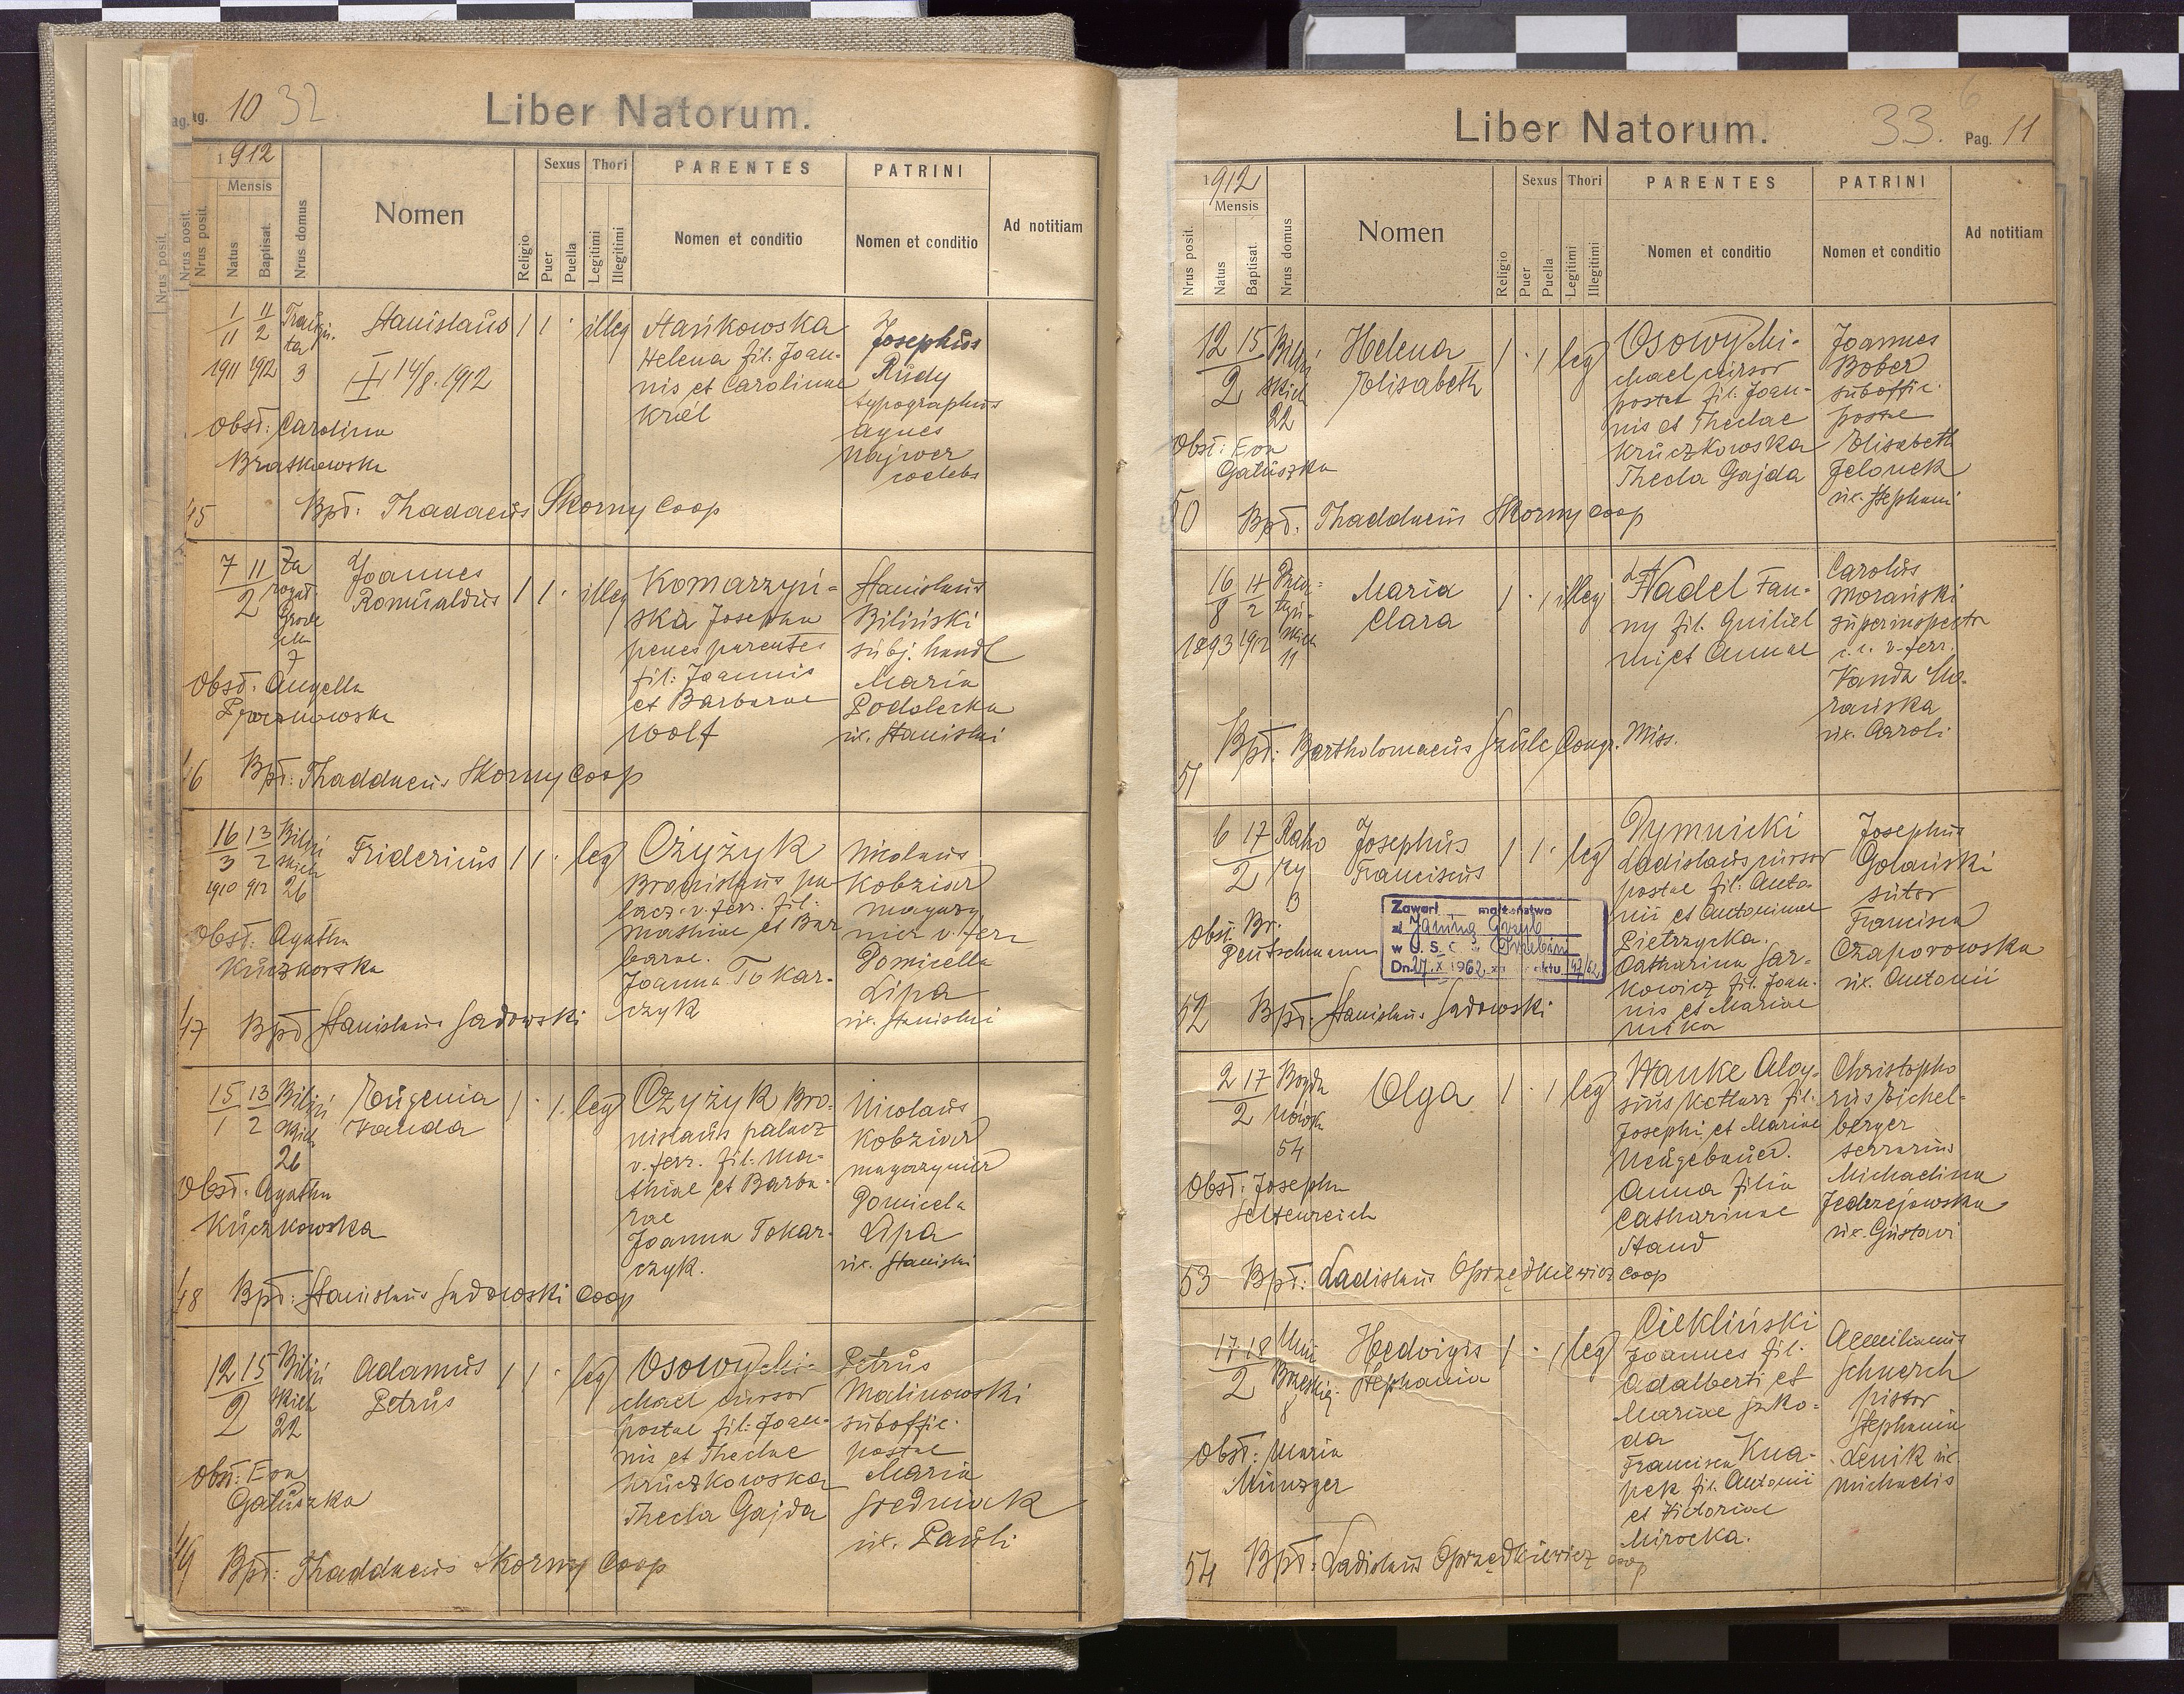 Pag. 10 32.
Liber Natorum.
1912
Mensis
Nrus posit.
Natus
Baptisat.
Nrus domus
Nomen
Religio
Sexus
Puer
Puella
Thori
Legitimi
Illegitimi
PARENTES
Nomen et conditio
PATRINI
Nomen et conditio
Ad notitiam
1/11 1911
11/2 1912
3
Stanislaus
14/8. 1912
1 1 · illeg
Stańkowska
Helena fil. Joan-
nis et Carolinae
Król
Josephus
Rudy
typographus
Agnes
Najwer
coelebs
Obst: Carolina
Bratkowska
45 Bpt: Thadaeus Skorny Coop
7 11
2
Za
rogat.
Grode
cka
7
Joannes
Romualdus
1 1 · illeg
Komarzyń-
ska Josepha
penes parentes
fil: Joannis
et Barbarae
Wolf
Stanislaus
Biliński
subj. handl
Maria
Podolecka
ux. Stanislai
Obst. Angella
46 Bpt: Thaddaeus Skorny Coop
16/3 1910
13/2 912
Biliń
skich
26
Fridericus
1 1 · leg
Czyżyk
Bronislaus pa
lacz. v. ferr. fil:
Mathiae et Bar
barae.
Joanna Tokar-
czyk
Nicolaus
Kobziar
magazy
nier v. ferr
Domicella
Lipa
ux. Stanislai
Obst: Agatha
Kuczkowska
47 Bpt Stanislaus Sadowski
15/1 13/2
Biliń
skich
26
Eugenia
Vanda
1 · 1. leg
Czyżyk Bro-
nislaus palacz
v. ferr. fil. Ma-
thiae et Barba-
rae
Joanna Tokar-
czyk.
Nicolaus
Kobziar
magazynier
Domicela
Lipa
ux. Stanislai
Obst: Agatha
Kuczkowska
48 Bpt: Stanislaus Sadowski Coop
12 15
2
Biliń
skich
22
Adamus
Petrus
1 1 · leg
Osowy Mi-
chael cursor
postae fil: Joan-
nis et Theclae
Kruczkowska
Thecla Gajda
Petrus
Malinowski
suboffic.
postae
Maria
Średniak
ux. Pauli
Obst: Eva
Gałuszka
49 Bpt: Thaddaeus Skorny Coop
Liber Natorum.
33.
6
Pag. 11
1912
Mensis
Nrus posit.
Natus
Baptisat.
Nrus domus
Nomen
Religio
Sexus
Puer
Puella
Thori
Legitimi
Illegitimi
PARENTES
Nomen et conditio
PATRINI
Nomen et conditio
Ad notitiam
12 15
2
Biliń
skich
22
Helena
Elisabeth
1 · 1 leg
Osowy Mi-
chael cursor
postae fil. Joan-
nis et Theclae
Kruczkowska
Thecla Gajda
Joannes
Bober
suboffic.
postae
Elisabeth
Jelonek
ux. Stephani
Obst: Eva
Gałuszka
50 Bpt. Thaddaeus Skorny Coop
16/8 1893
4/2 1912
11
Maria
Clara
1 · 1 illeg
Nadel Fan-
ny fil. Guiliel
mi et Annae
Carolus
Morański
superinspector
c. c. v. ferr.
Vanda Mo-
rańska
ux. Caroli
51 Bpt: Bartholomaeus Szulc Congr. Miss.
6 17
2
3
Josephus
Franciscus
1 1 · leg
Dymnicki
Ladislaus cursor
postae fil. Anto-
nii et Antoninae
Pietrzycka.
Catharina Jar-
kowicz fil. Joan-
nis et Mariae
Josephus
Golański
sutor
Francisca
Czaporowska
ux. Antonii
Obst: Br.
Deutschmann
Zawarł małżeństwo
z Janiną Grzyb
w U. S. C.
Dn. 27.X 1962 aktu 147/62
52 Bpt. Stanislaus Sadowski
2 17
2
Bogda
nówka
54
Olga
1 · 1 leg
Hanke Aloy-
sius kotlarz fil:
Josephi et Mariae
Neugebauer.
Anna filia
Catharinae
Staud
Christopho
rus Eichel-
berger
serrarius
Michaelina
Jedrzejowska
ux. Gustavi
Obst: Josepha
Seltenreich
53 Bpt: Ladislaus Oprzędkiewicz Coop
17 18
2
Unii
Brzeskiej
8
Hedvigis
Stephania
1 · 1 leg
Ciekliński
Joannes fil.
Adalberti et
Mariae Szko-
da
Francisca Kna-
pek fil. Antonii
et Victoriae
Mirocka.
Aemilianus
Schnerch
pistor
Stephania
Lenik ux.
Michaelis
Obst: Maria
Münzger
54 Bpt: Ladislaus Oprzędkiewicz Coop